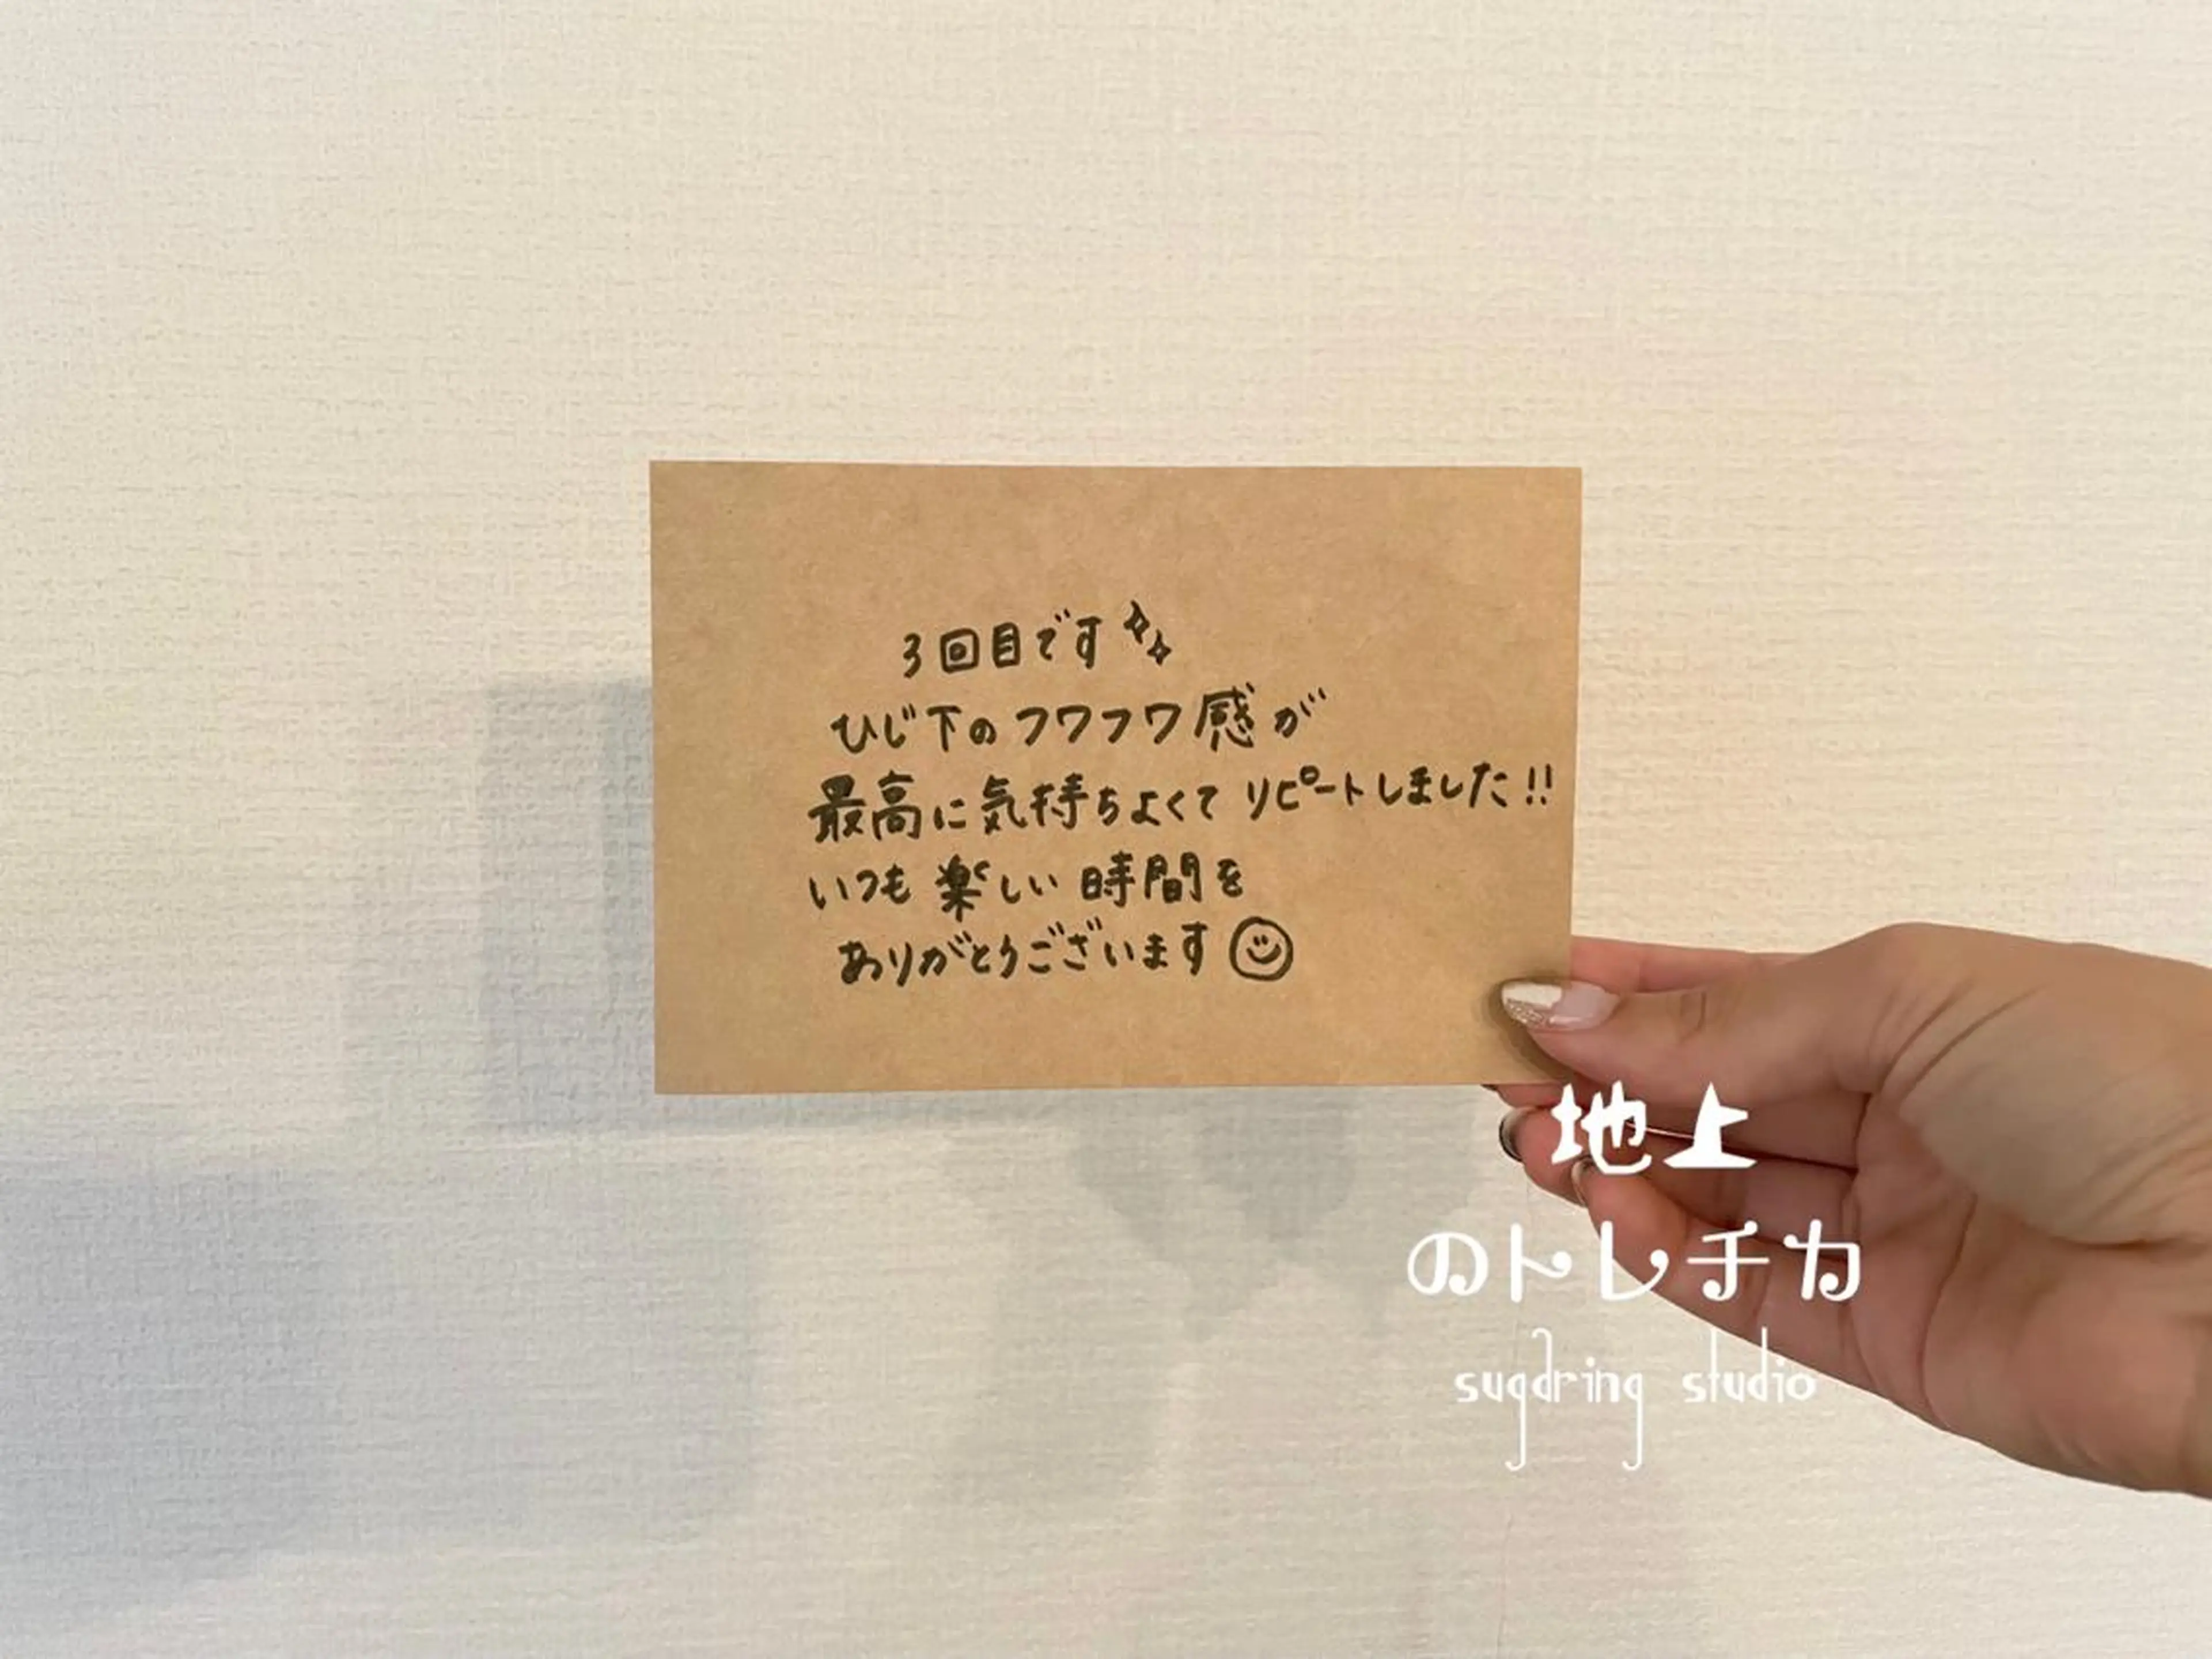 3回目です
ひじ下のフワフワ感が
最高に気持ちよくてリピートしました!!
いつも楽しい時間を
ありがとうございます
地上
のトレチカ
sugaring studio